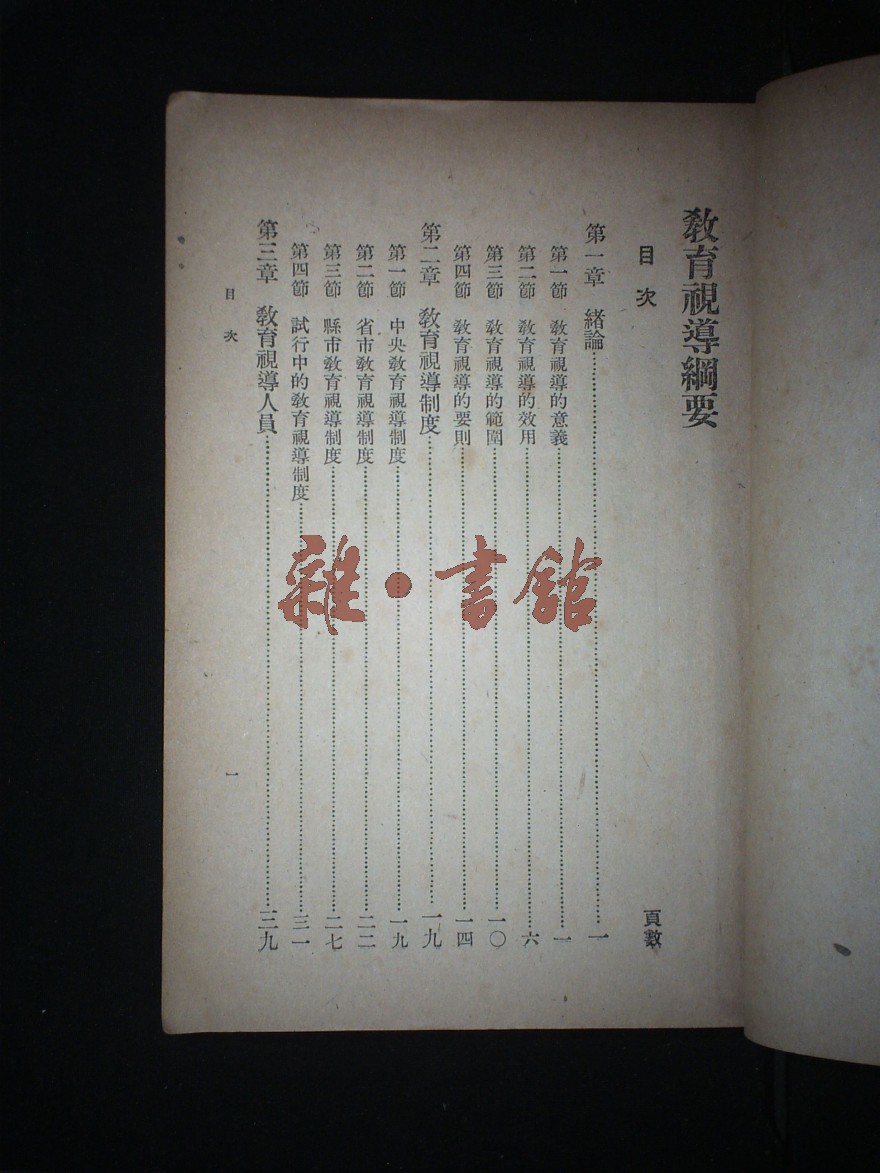 教育視導綱要
目次
頁數
第一章 緒論……一
第一節 教育視導的意義……一
第二節 教育視導的效用……六
第三節 教育視導的範圍……一〇
第四節 教育視導的要則……一四
第二章 教育視導制度……一九
第一節 中央教育視導制度……一九
第二節 省市教育視導制度……二二
第三節 縣市教育視導制度……二七
第四節 試行中的教育視導制度……三一
第三章 教育視導人員……三九
目次
一
雜·書館